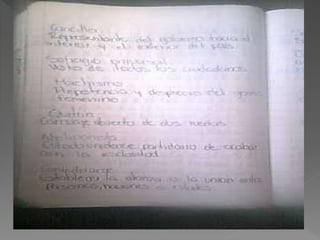 Canciller
Representante del gobierno hacia el
interior y el exterior del país
Sufragio universal
Voto de todos los ciudadanos
Machismo
Prepotencia y desprecio del gen
femenino
Carruaje abierto de dos ruedas
Abolicionista
Estadounidense partidario de acabar
con la esclavitud
Establecer la alianza o la unión entre
Personas, naciones o estados